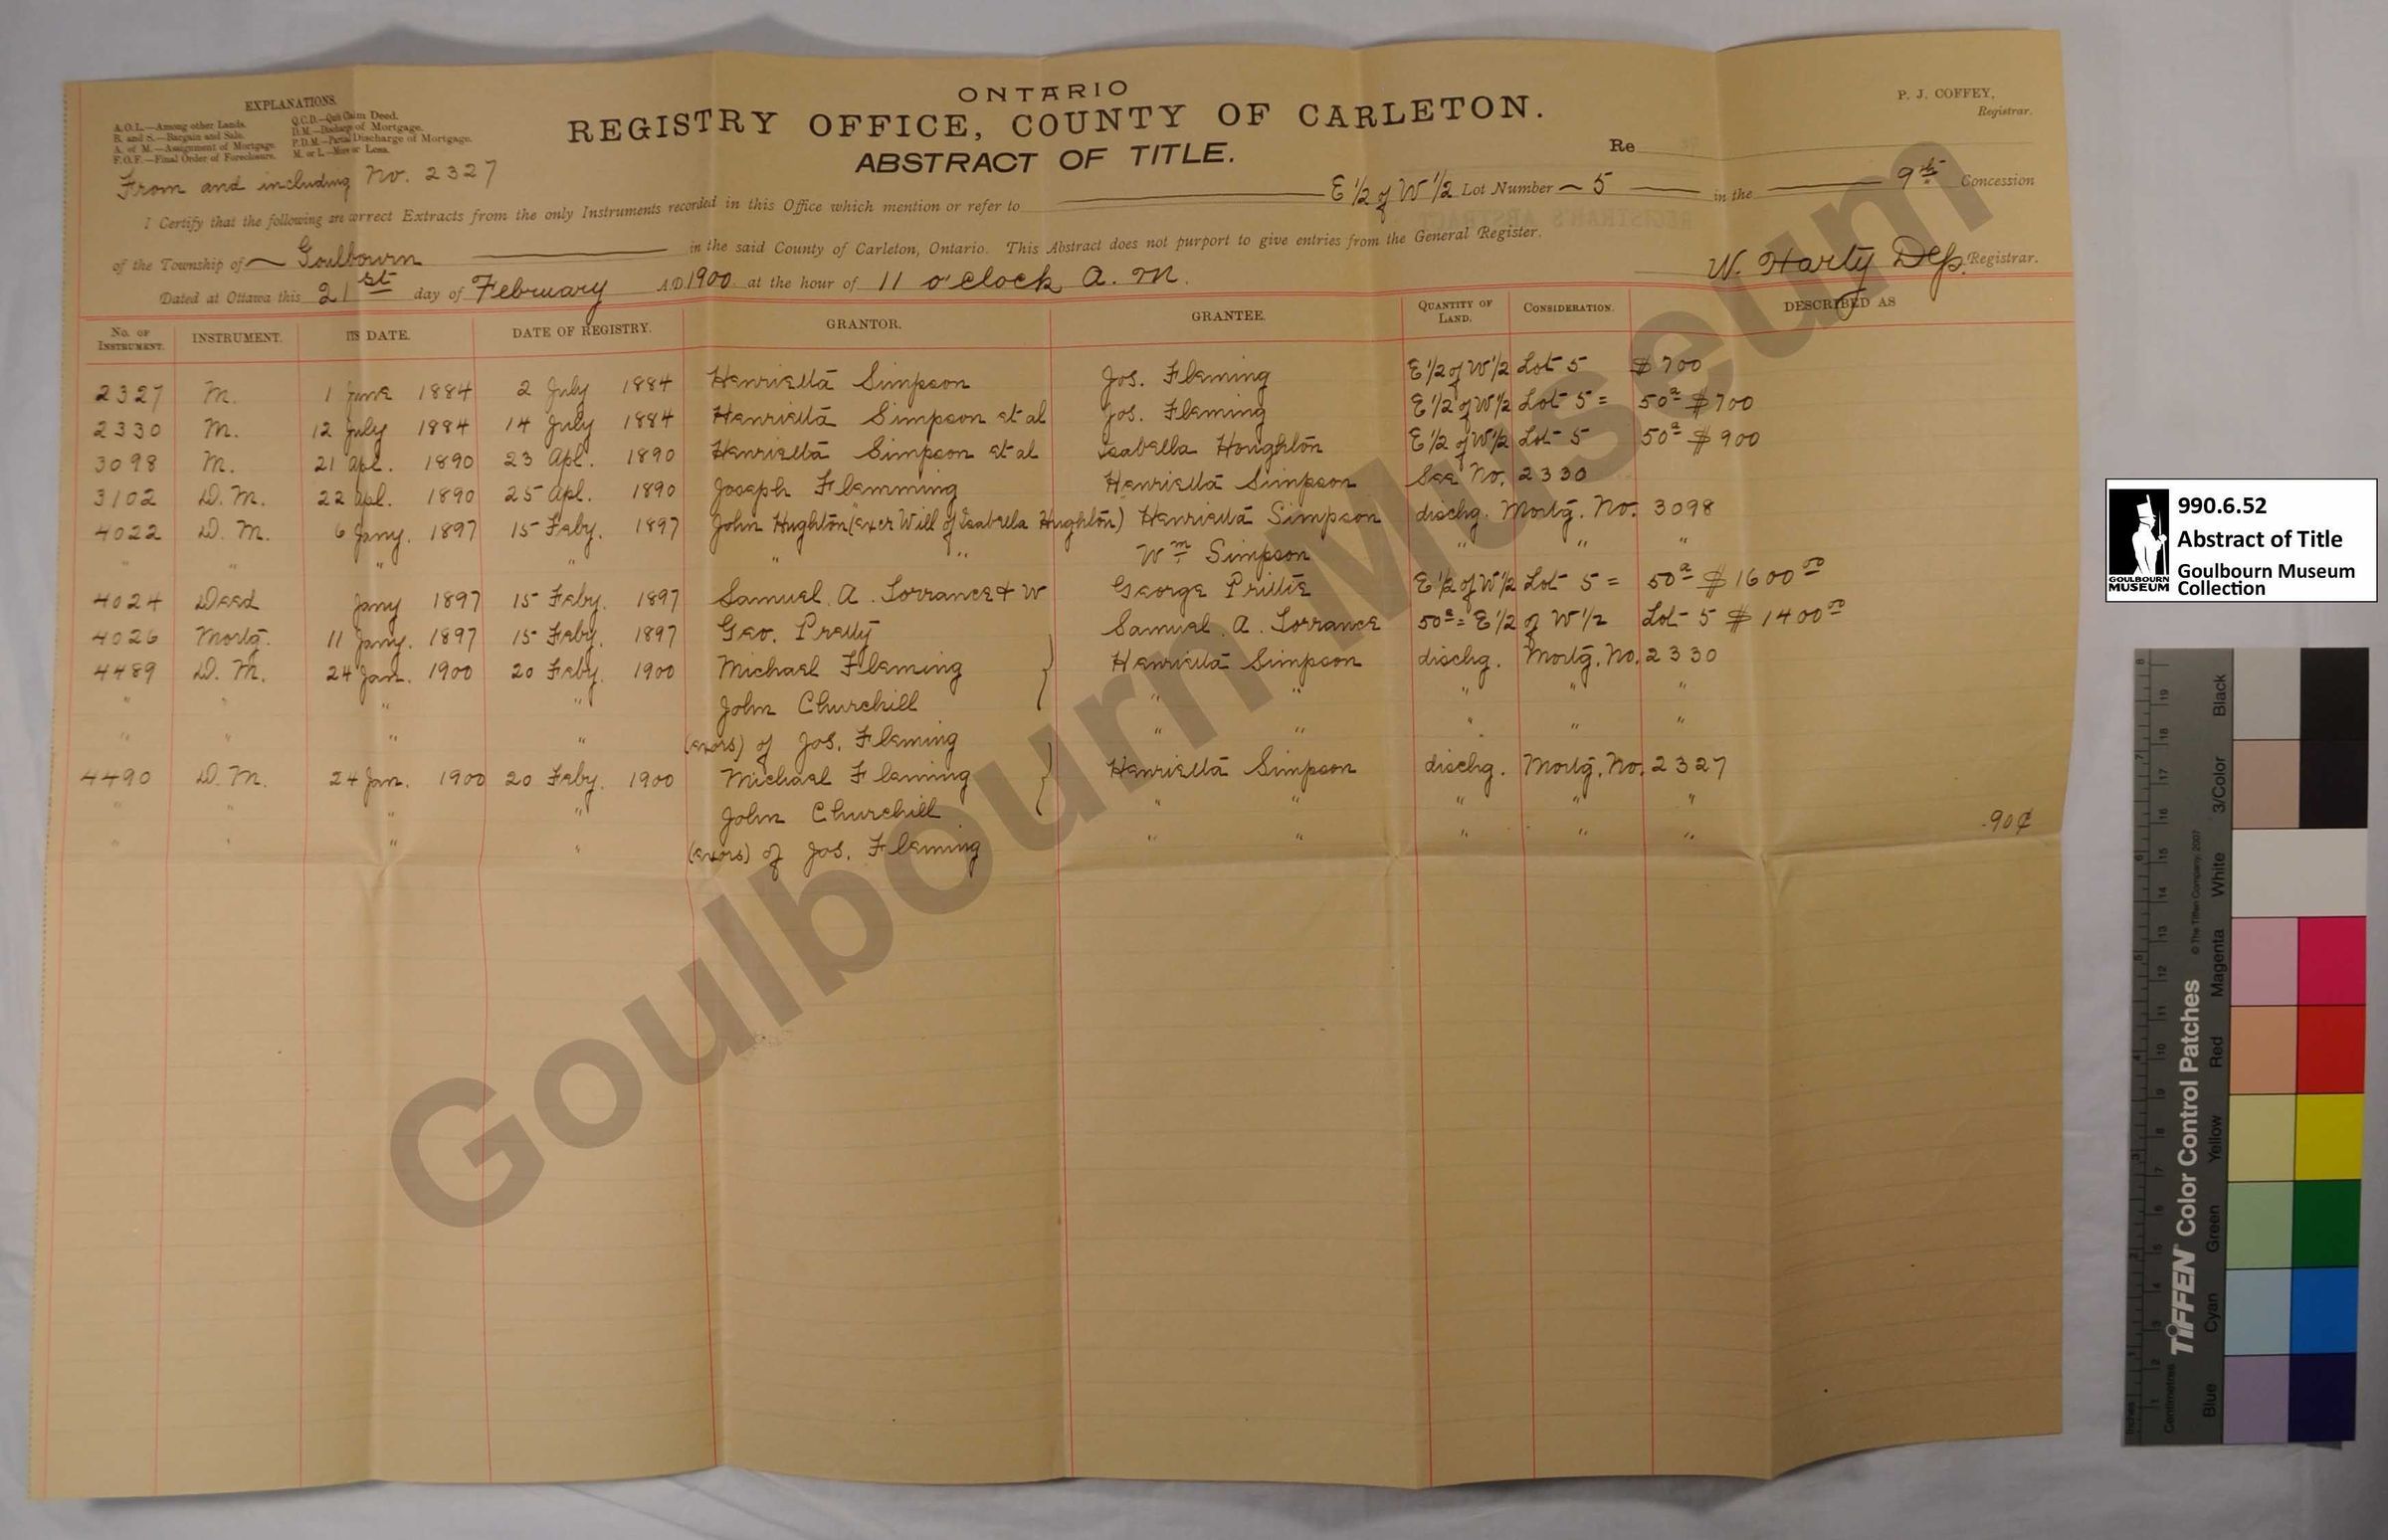 ONTARIO
REGISTRY OFFICE, COUNTY OF CARLETON.
ABSTRACT OF TITLE.
P. J. COFFEY,
Registrar.
EXPLANATIONS.
A.O.L.—Among other Lands.
B. and S.—Bargain and Sale.
A. of M.—Assignment of Mortgage.
F.O.F.—Final Order of Foreclosure.
Q.C.D.—Quit Claim Deed.
D.M.—Discharge of Mortgage.
P.D.M.—Partial Discharge of Mortgage.
M. or L.—More or Less.
Re
From and including No. 2327
I Certify that the following are correct Extracts from the only Instruments recorded in this Office which mention or refer to E 1/2 of W 1/2 Lot Number 5 in the 9th Concession
of the Township of Goulbourn in the said County of Carleton, Ontario. This Abstract does not purport to give entries from the General Register.
Dated at Ottawa this 21st day of February A.D. 1900 at the hour of 11 o'clock a. m. W. Harty Dep. Registrar.
No. OF INSTRUMENT. INSTRUMENT. ITS DATE. DATE OF REGISTRY. GRANTOR. GRANTEE. QUANTITY OF LAND. CONSIDERATION. DESCRIBED AS
2327 M. 1 June 1884 2 July 1884 Henrietta Simpson Jos. Fleming E 1/2 of W 1/2 Lot 5 $700
2330 M. 12 July 1884 14 July 1884 Henrietta Simpson et al Jos. Fleming E 1/2 of W 1/2 Lot 5 = 50a $700
3098 M. 21 Apl. 1890 23 Apl. 1890 Henrietta Simpson et al Isabella Houghton E 1/2 of W 1/2 Lot 5 50a $900
3102 D. M. 22 Apl. 1890 25 Apl. 1890 Joseph Flemming Henrietta Simpson See No. 2330
4022 D. M. 6 Jany. 1897 15 Feby. 1897 John Hughton (exer Will of Isabella Hughton) Henrietta Simpson dischg. Mortg. No. 3098
" " " " " " Wm Simpson " " "
4024 Deed Jany 1897 15 Feby. 1897 Samuel. A. Lorrance & W George Prittie E 1/2 of W 1/2 Lot 5 = 50a $1600 00
4026 Mortg. 11 Jany. 1897 15 Feby. 1897 Geo. Pretty Samuel. A. Lorrance 50a = E 1/2 of W 1/2 Lot 5 $1400 00
4489 D. M. 24 Jan. 1900 20 Feby. 1900 Michael Fleming } Henrietta Simpson dischg. Mortg. No. 2330
" " " " John Churchill " " " " "
" " " " (exors) of Jos. Fleming " " " " "
4490 D. M. 24 Jan. 1900 20 Feby. 1900 Michael Fleming } Henrietta Simpson dischg. Mortg. No. 2327
" " " " John Churchill " " " " "
" " " " (exors) of Jos. Fleming " " " " "
.90¢
Goulbourn Museum
990.6.52
Abstract of Title
Goulbourn Museum
Collection
GOULBOURN
MUSEUM
TIFFEN Color Control Patches
© The Tiffen Company, 2007
Centimetres
Inches
Blue Cyan Green Yellow Red Magenta White 3/Color Black